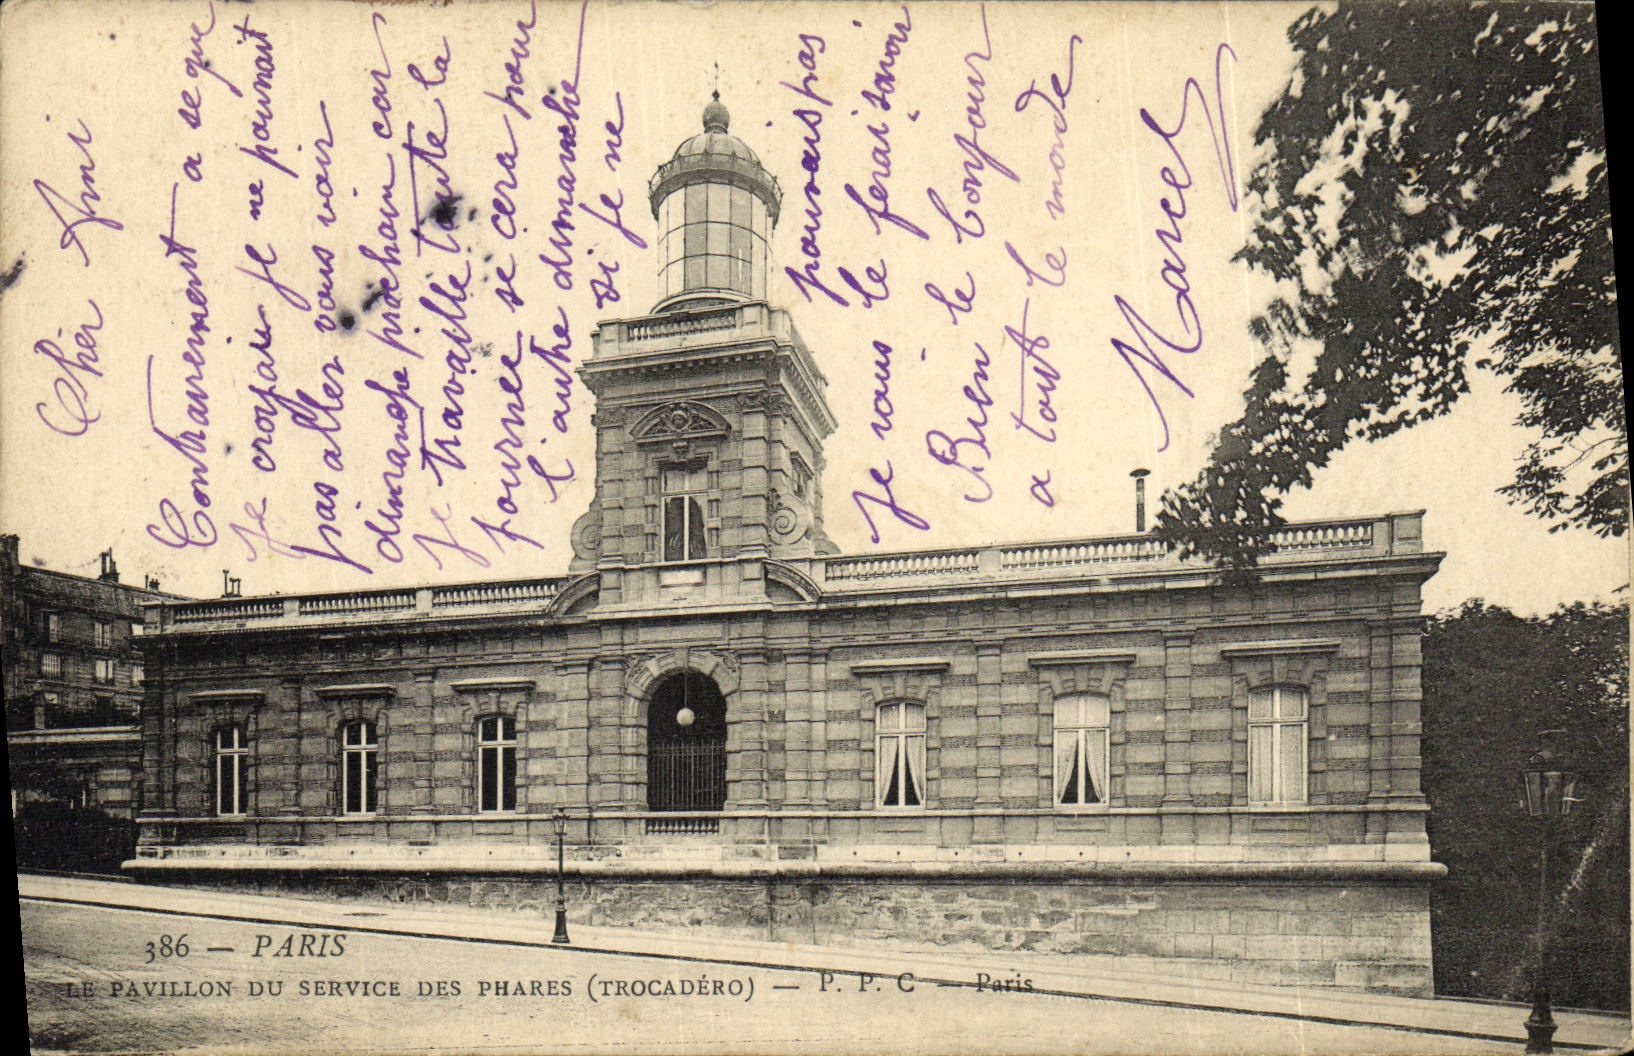 Cher Ami
Contrairement a se que
je croyais je ne pourrait
pas aller vous voir
dimanche prochain car
je travaille toute la
journée se cera pour
l'autre dimanche
si je ne
pourrais pas
je vous le ferai savoir
Bien le bonjour
a tout le monde
Marcel
386 — PARIS
LE PAVILLON DU SERVICE DES PHARES (TROCADÉRO) — P. P. C — Paris